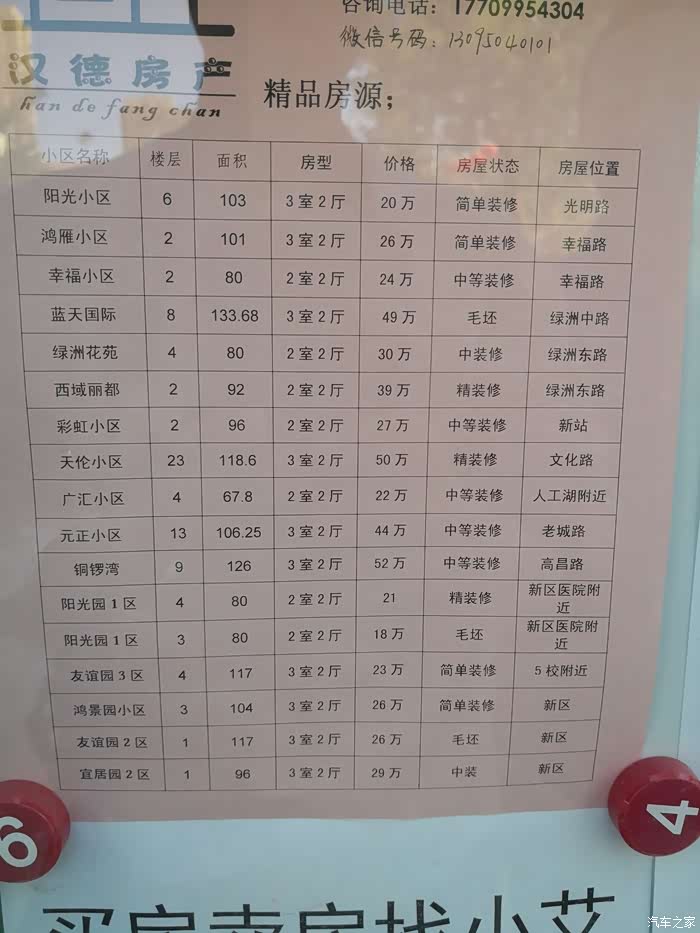 咨询电话：17709954304
微信号码：13095040101
汉德房产
han de fang chan
精品房源；
小区名称 楼层 面积 房型 价格 房屋状态 房屋位置
阳光小区 6 103 3室2厅 20万 简单装修 光明路
鸿雁小区 2 101 3室2厅 26万 简单装修 幸福路
幸福小区 2 80 2室2厅 24万 中等装修 幸福路
蓝天国际 8 133.68 3室2厅 49万 毛坯 绿洲中路
绿洲花苑 4 80 2室2厅 30万 中装修 绿洲东路
西域丽都 2 92 2室2厅 39万 精装修 绿洲东路
彩虹小区 2 96 2室2厅 27万 中等装修 新站
天伦小区 23 118.6 3室2厅 50万 精装修 文化路
广汇小区 4 67.8 2室2厅 22万 中等装修 人工湖附近
元正小区 13 106.25 3室2厅 44万 中等装修 老城路
铜锣湾 9 126 3室2厅 52万 中等装修 高昌路
阳光园1区 4 80 2室2厅 21 精装修 新区医院附近
阳光园1区 3 80 2室2厅 18万 毛坯 新区医院附近
友谊园3区 4 117 3室2厅 23万 简单装修 5校附近
鸿景园小区 3 104 3室2厅 26万 简单装修 新区
友谊园2区 1 117 3室2厅 26万 毛坯 新区
宜居园2区 1 96 3室2厅 29万 中装 新区
6
4
买房卖房找小艾
汽车之家